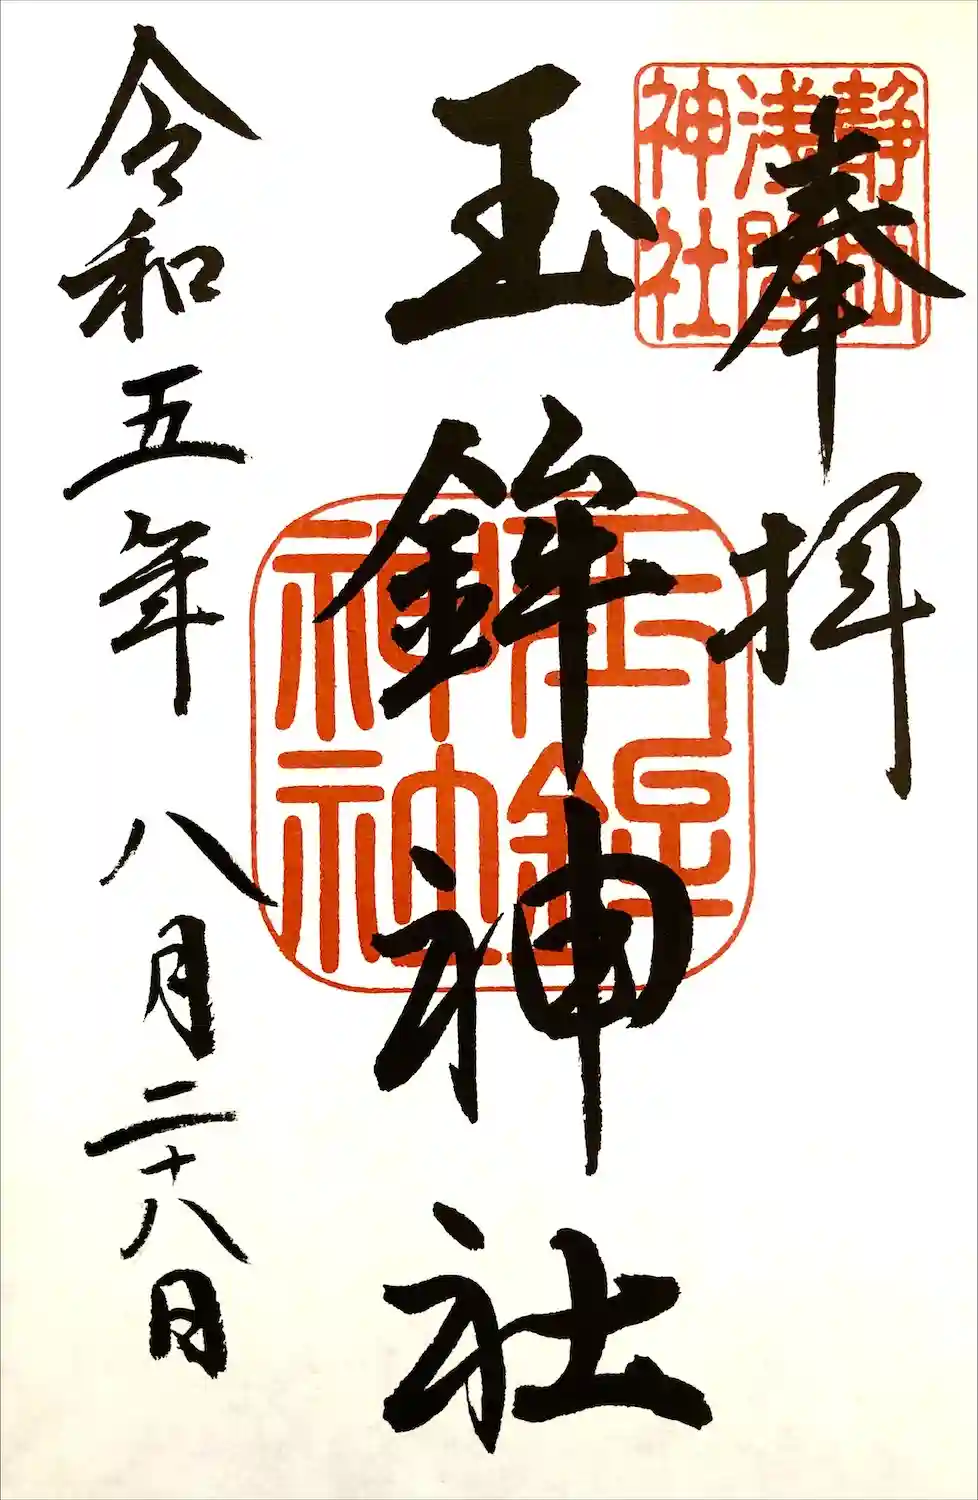 奉拝
静岡
浅間
神社
玉鉾神社
玉鉾
神社
令和五年 八月二十八日